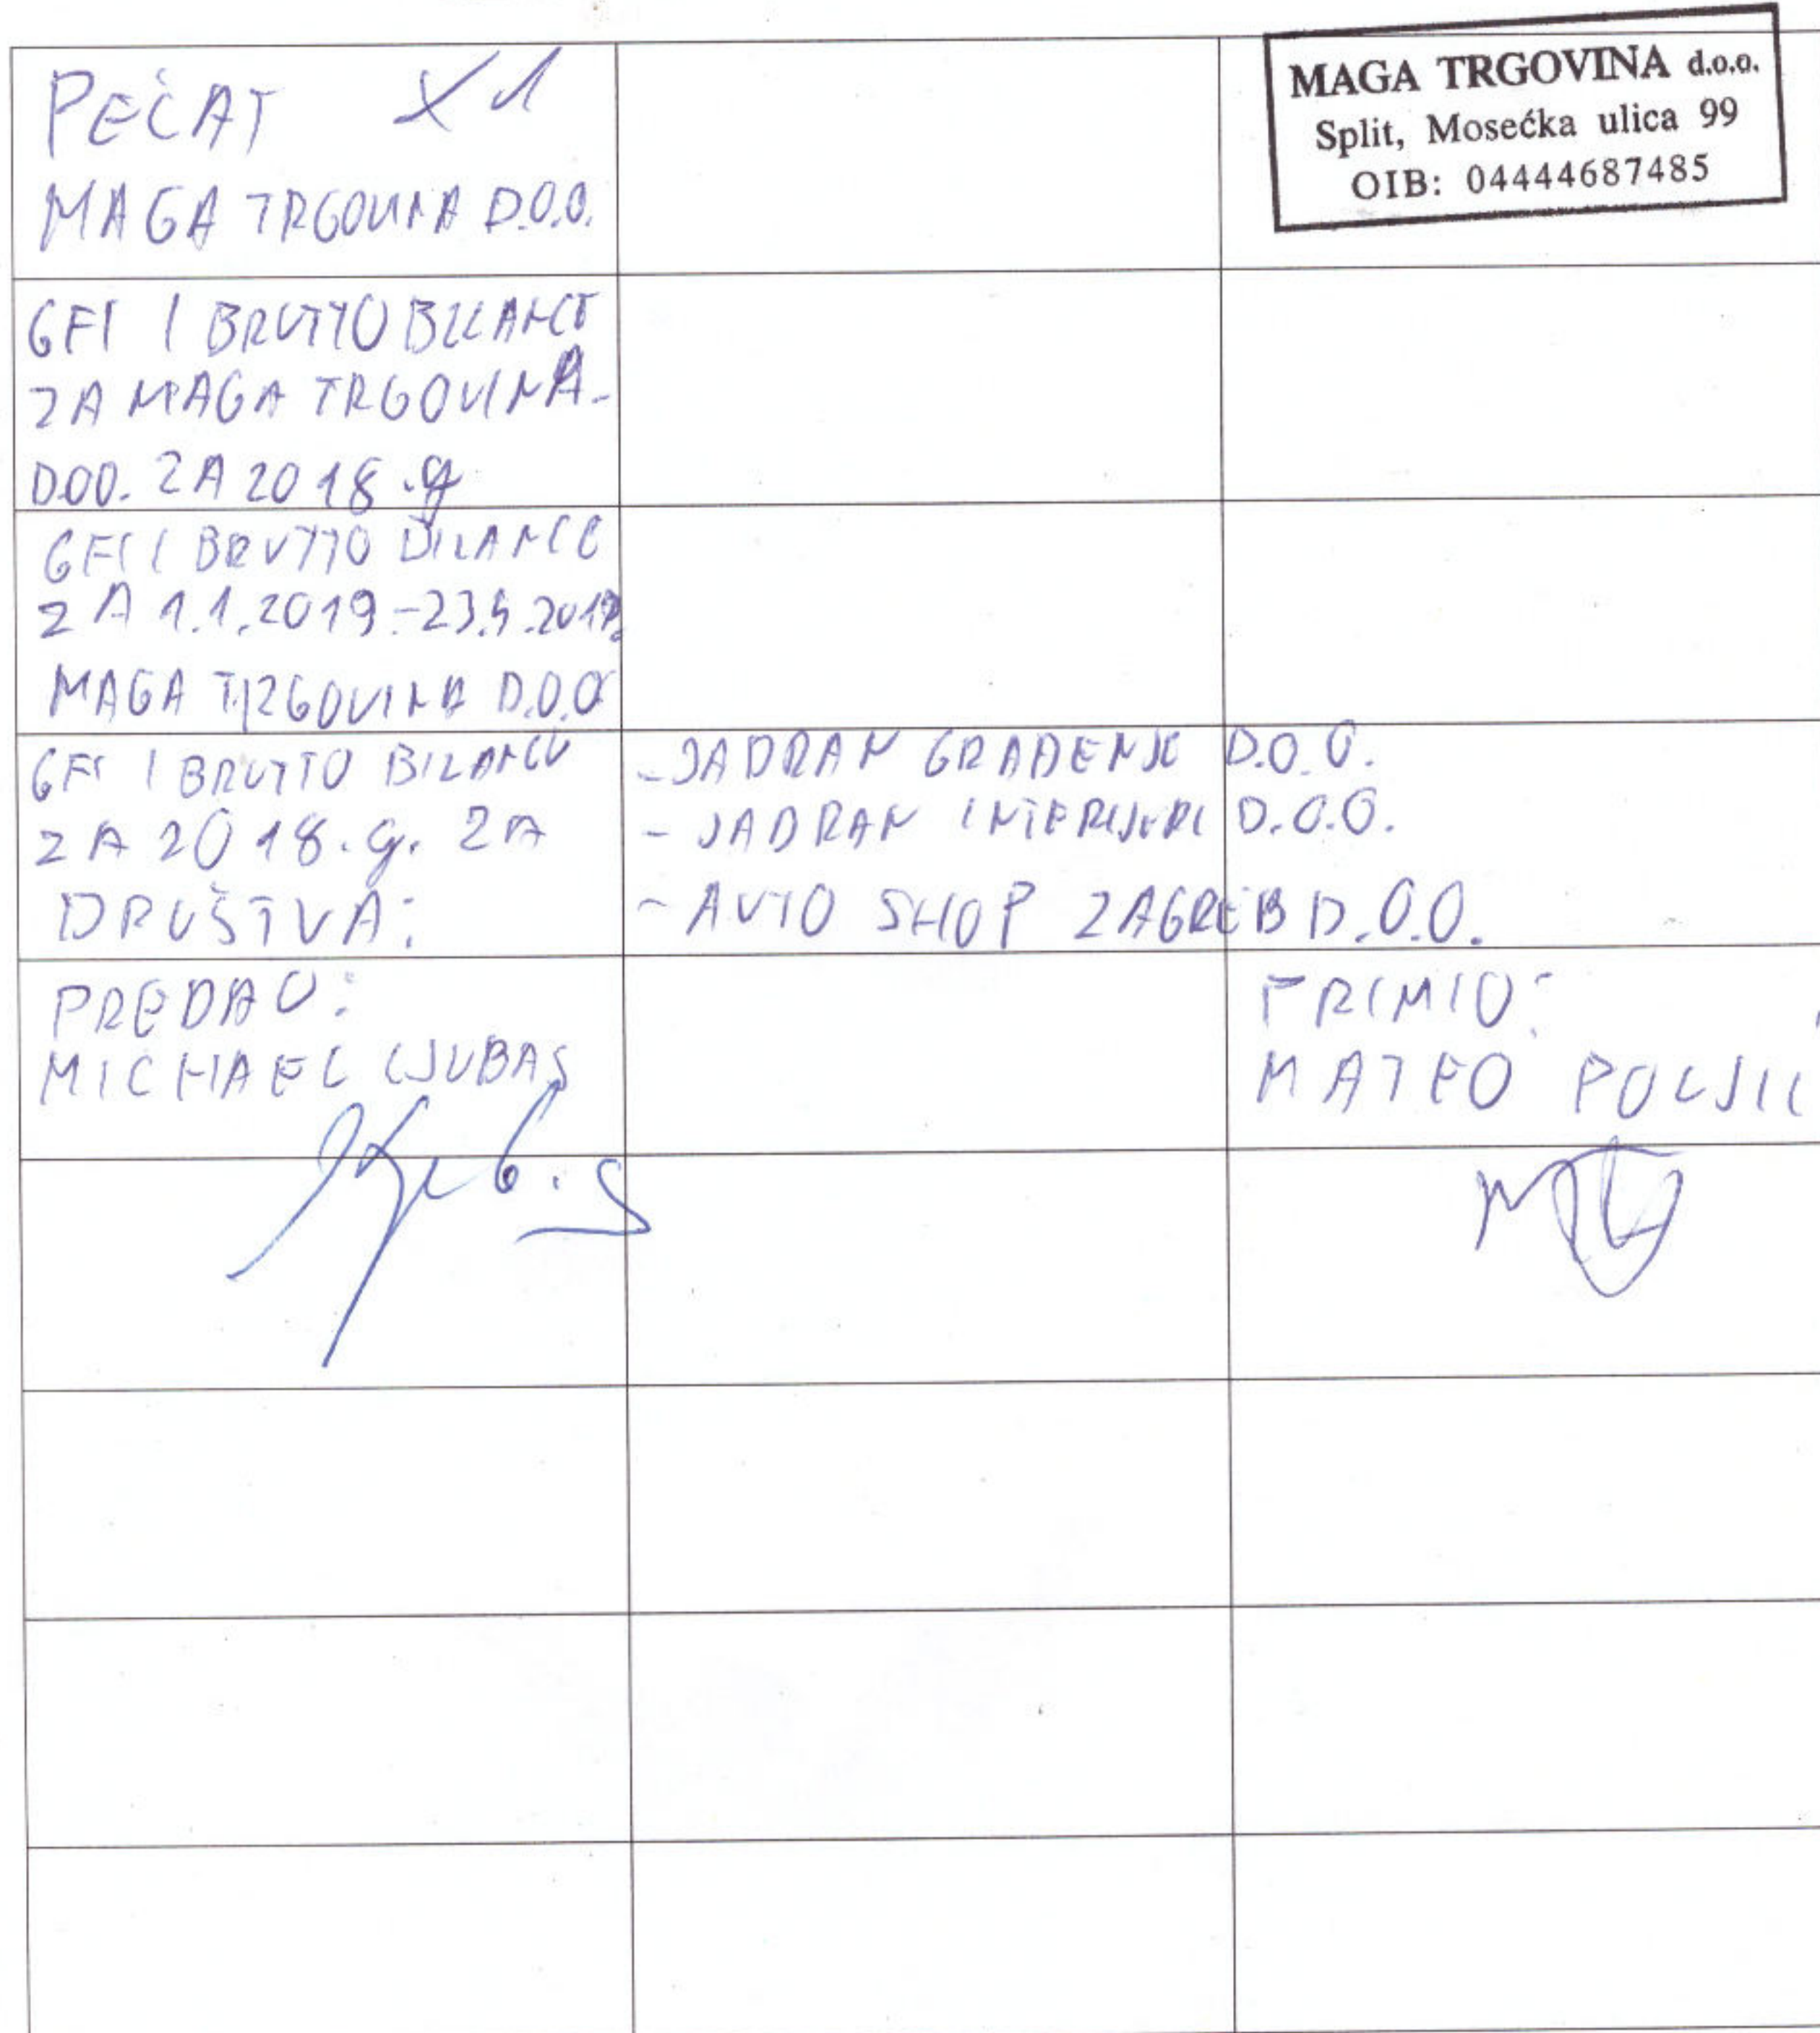 PEČAT X1
MAGA TRGOVINA D.O.O.
MAGA TRGOVINA d.o.o.
Split, Mosećka ulica 99
OIB: 04444687485
GFI I BRUTTO BILANCE
ZA MAGA TRGOVINA
DOO. ZA 2018.g
GFI I BRUTTO BILANCE
ZA 1.1.2019-23.5.2019.
MAGA TRGOVINA D.O.O
GFI I BRUTTO BILANCE
ZA 2018.g. ZA
DRUŠTVA:
-JADRAN GRAĐENJE D.O.O.
- JADRAN INTERIJERI D.O.O.
- AUTO SHOP ZAGREB D.O.O.
PREDAO:
MICHAEL LJUBAS
PRIMIO:
MATEO POLJIC